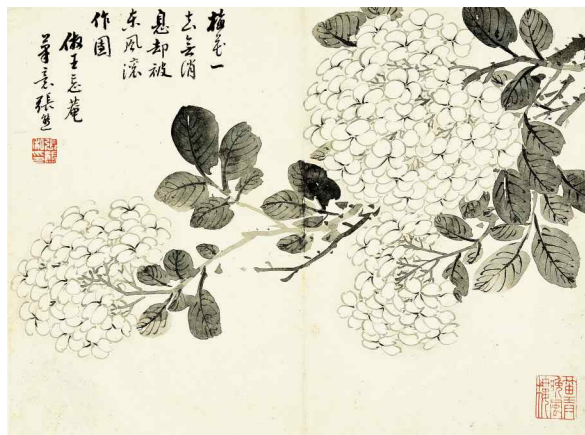 楊花一
去無消
息却被
東風滾
作團
倣王忘菴
筆意張熊